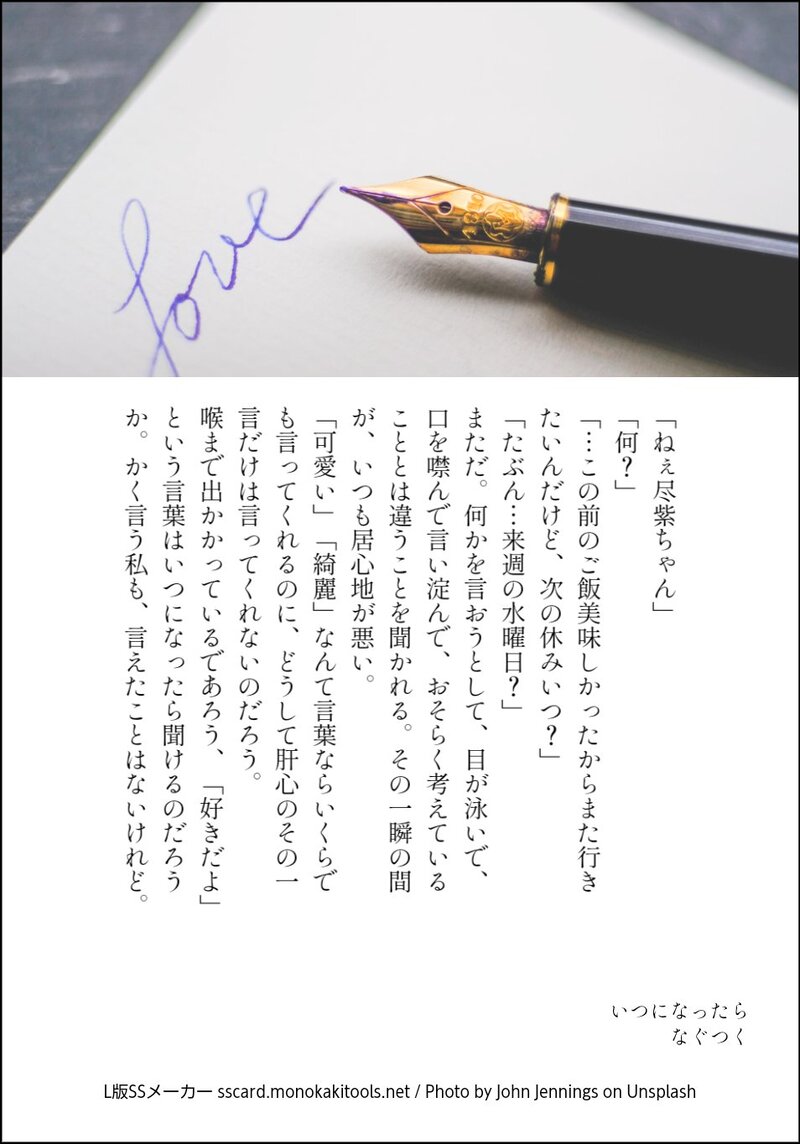 love
1810
「ねぇ尽紫ちゃん」
「何？」
「…この前のご飯美味しかったからまた行き
たいんだけど、次の休みいつ？」
「たぶん…来週の水曜日？」
まただ。何かを言おうとして、目が泳いで、
口を噤んで言い淀んで、おそらく考えている
こととは違うことを聞かれる。その一瞬の間
が、いつも居心地が悪い。
「可愛い」「綺麗」なんて言葉ならいくらで
も言ってくれるのに、どうして肝心のその一
言だけは言ってくれないのだろう。
喉まで出かかっているであろう、「好きだよ」
という言葉はいつになったら聞けるのだろう
か。かく言う私も、言えたことはないけれど。
いつになったら
なぐつく
L版SSメーカー sscard.monokakitools.net / Photo by John Jennings on Unsplash